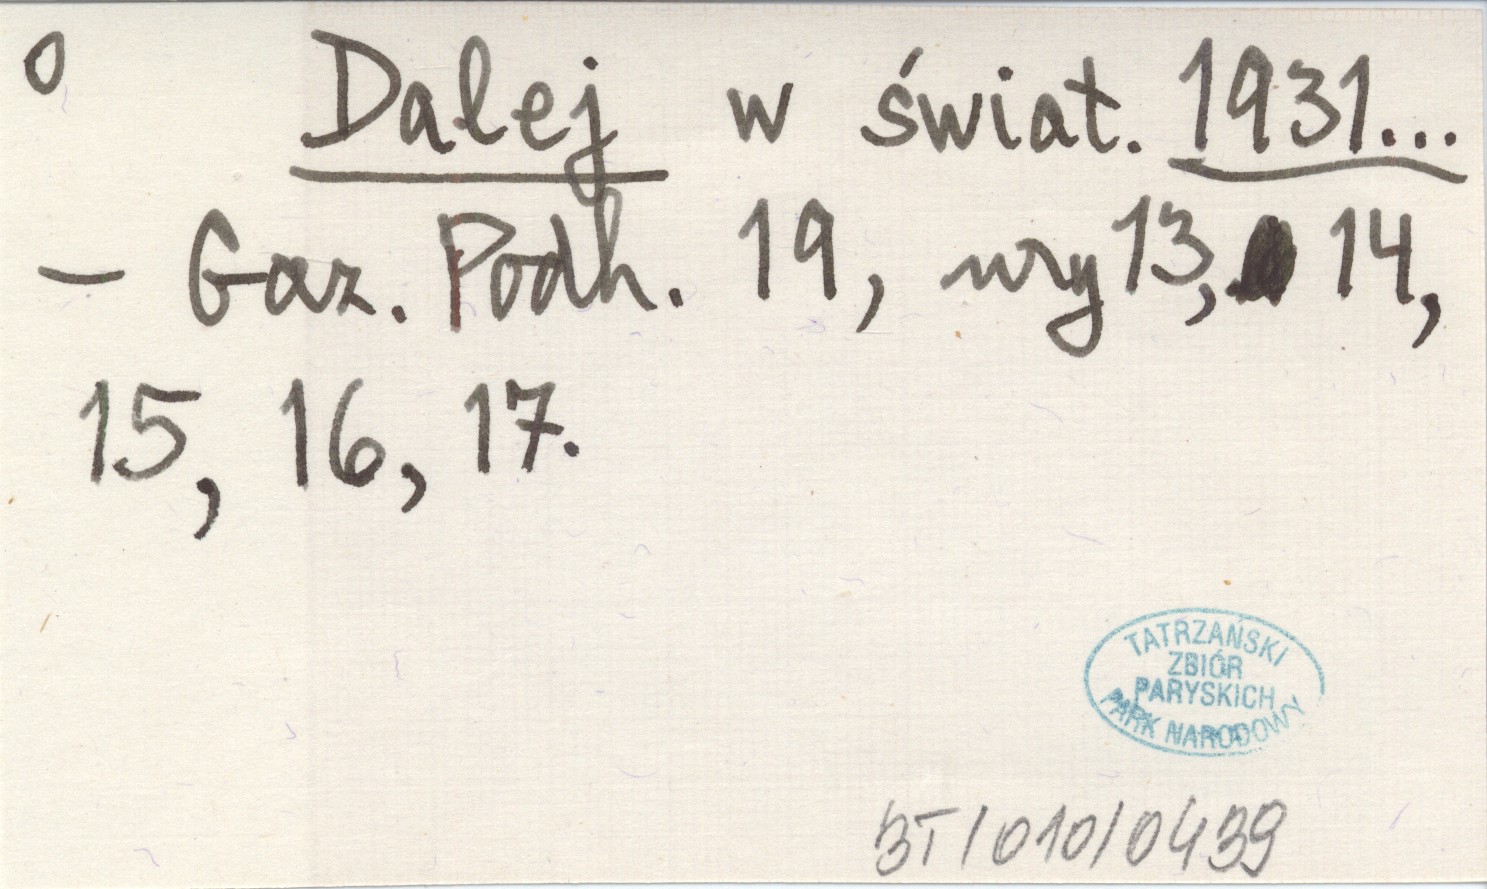 o Dalej w świat. 1931...
— Gaz. Podh. 19, nry 13, 14,
15, 16, 17.
TATRZAŃSKI
ZBIÓR
PARYSKICH
PARK NARODOWY
BT/010/0439